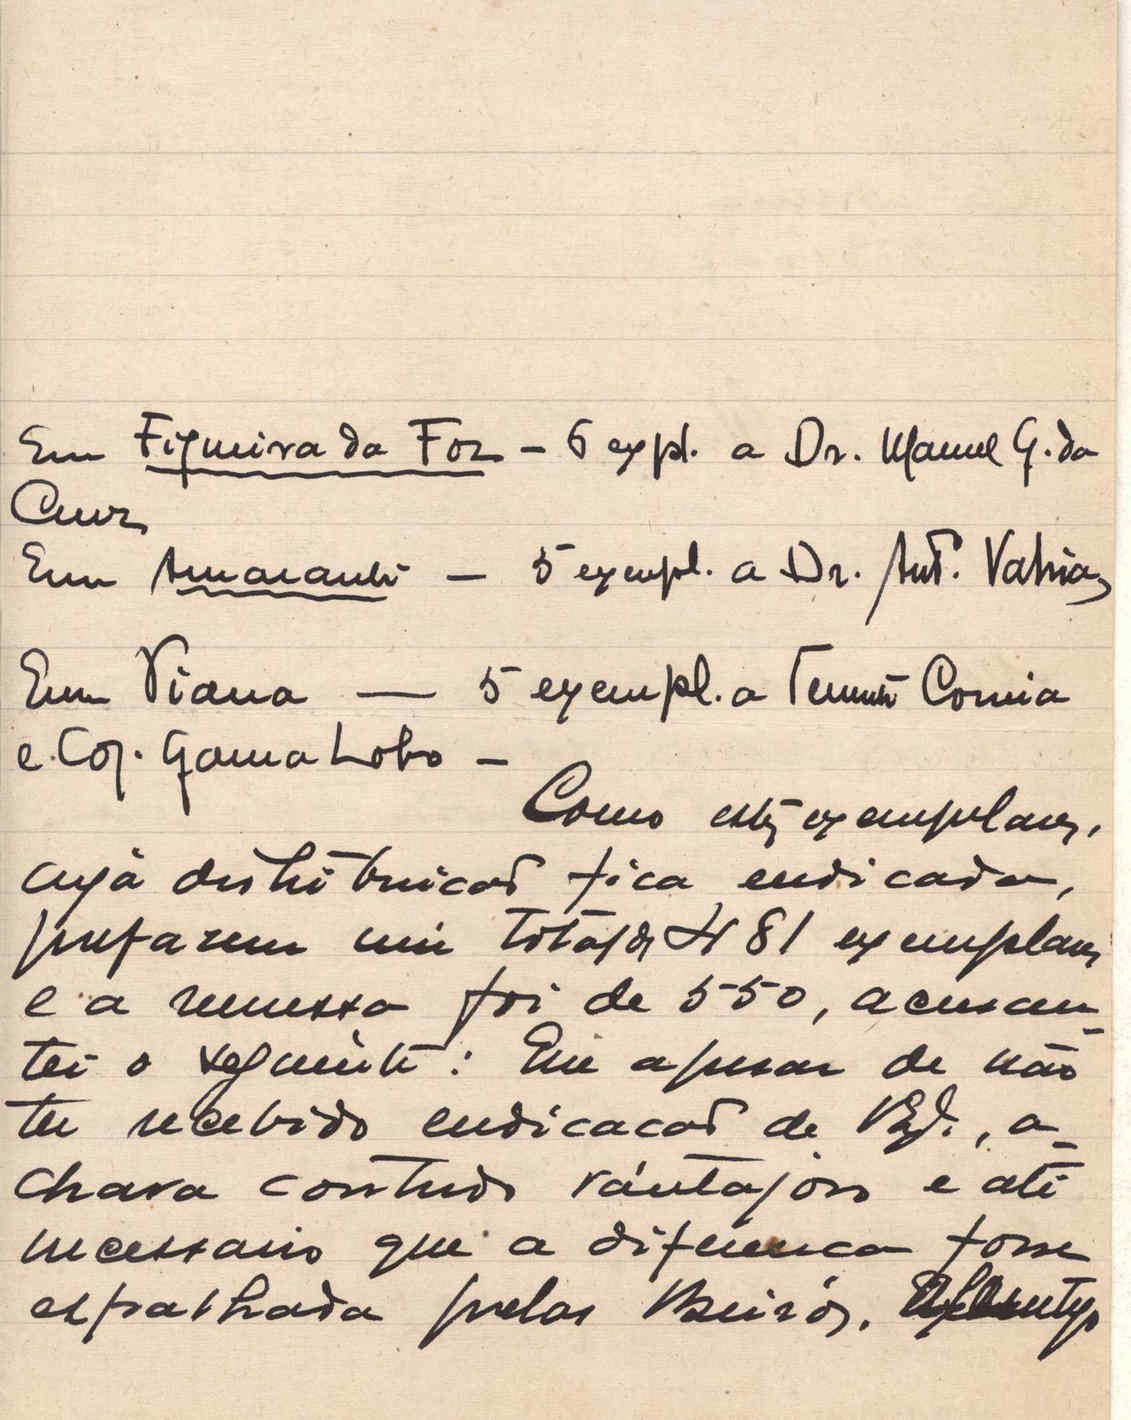 Em Figueira da Foz – 6 expl. a Dr. Manuel G. da
Cruz
Em Amarante – 5 exempl. a Dr. Ant.
Em Viana — 5 exempl. a Tenente Correia
e Cap. Gama Lobo –
Como estes exemplares,
cuja distribuicaõ fica endicada,
prefazem um total de 481 exemplares
e a remessa foi de 550, acrescen-
tei o seguinte: Eu apesar de não
ter recebido endicacaõ de V. Ex.ª, a-
chava contudo vantajoso e até
necessario que a diferenca fosse
espalhada pelas Beiras,